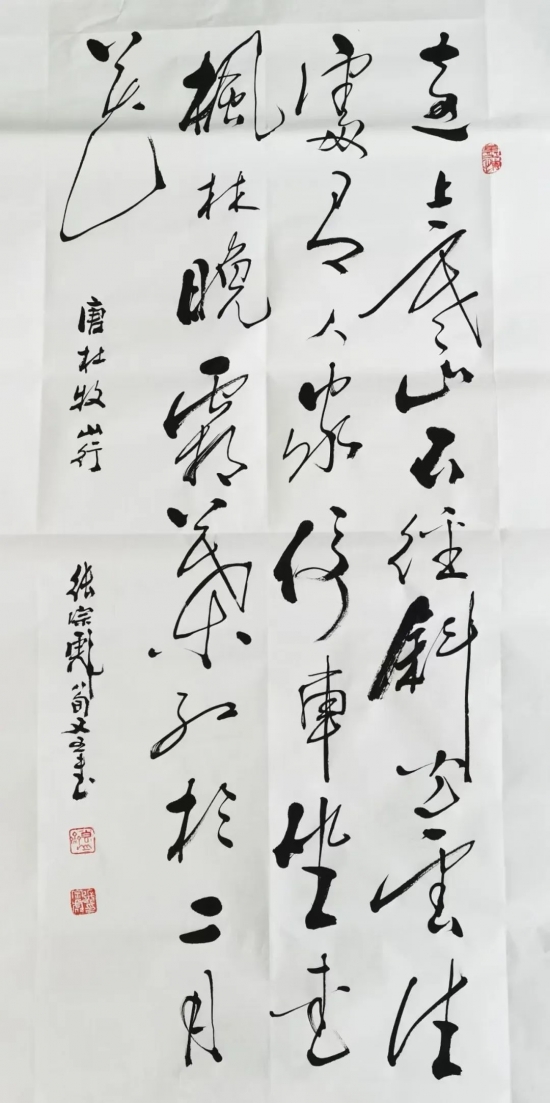 遠上寒山石徑斜白雲生
處有人家停車坐愛
楓林晚霜葉紅於二月
花
唐杜牧山行
張宗彪八旬又五書